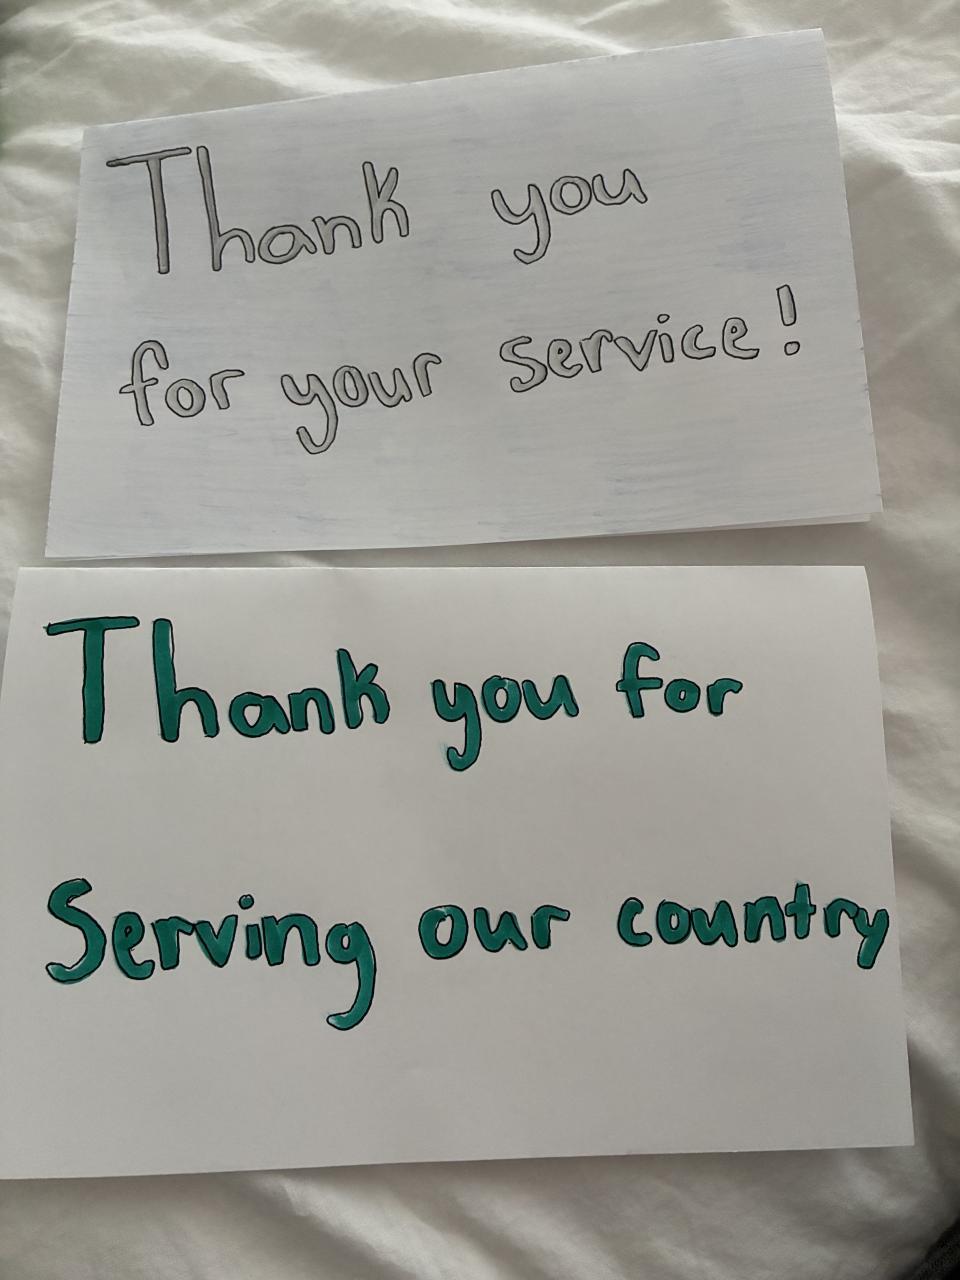 Thank you
for your service!
Thank you for
Serving our country